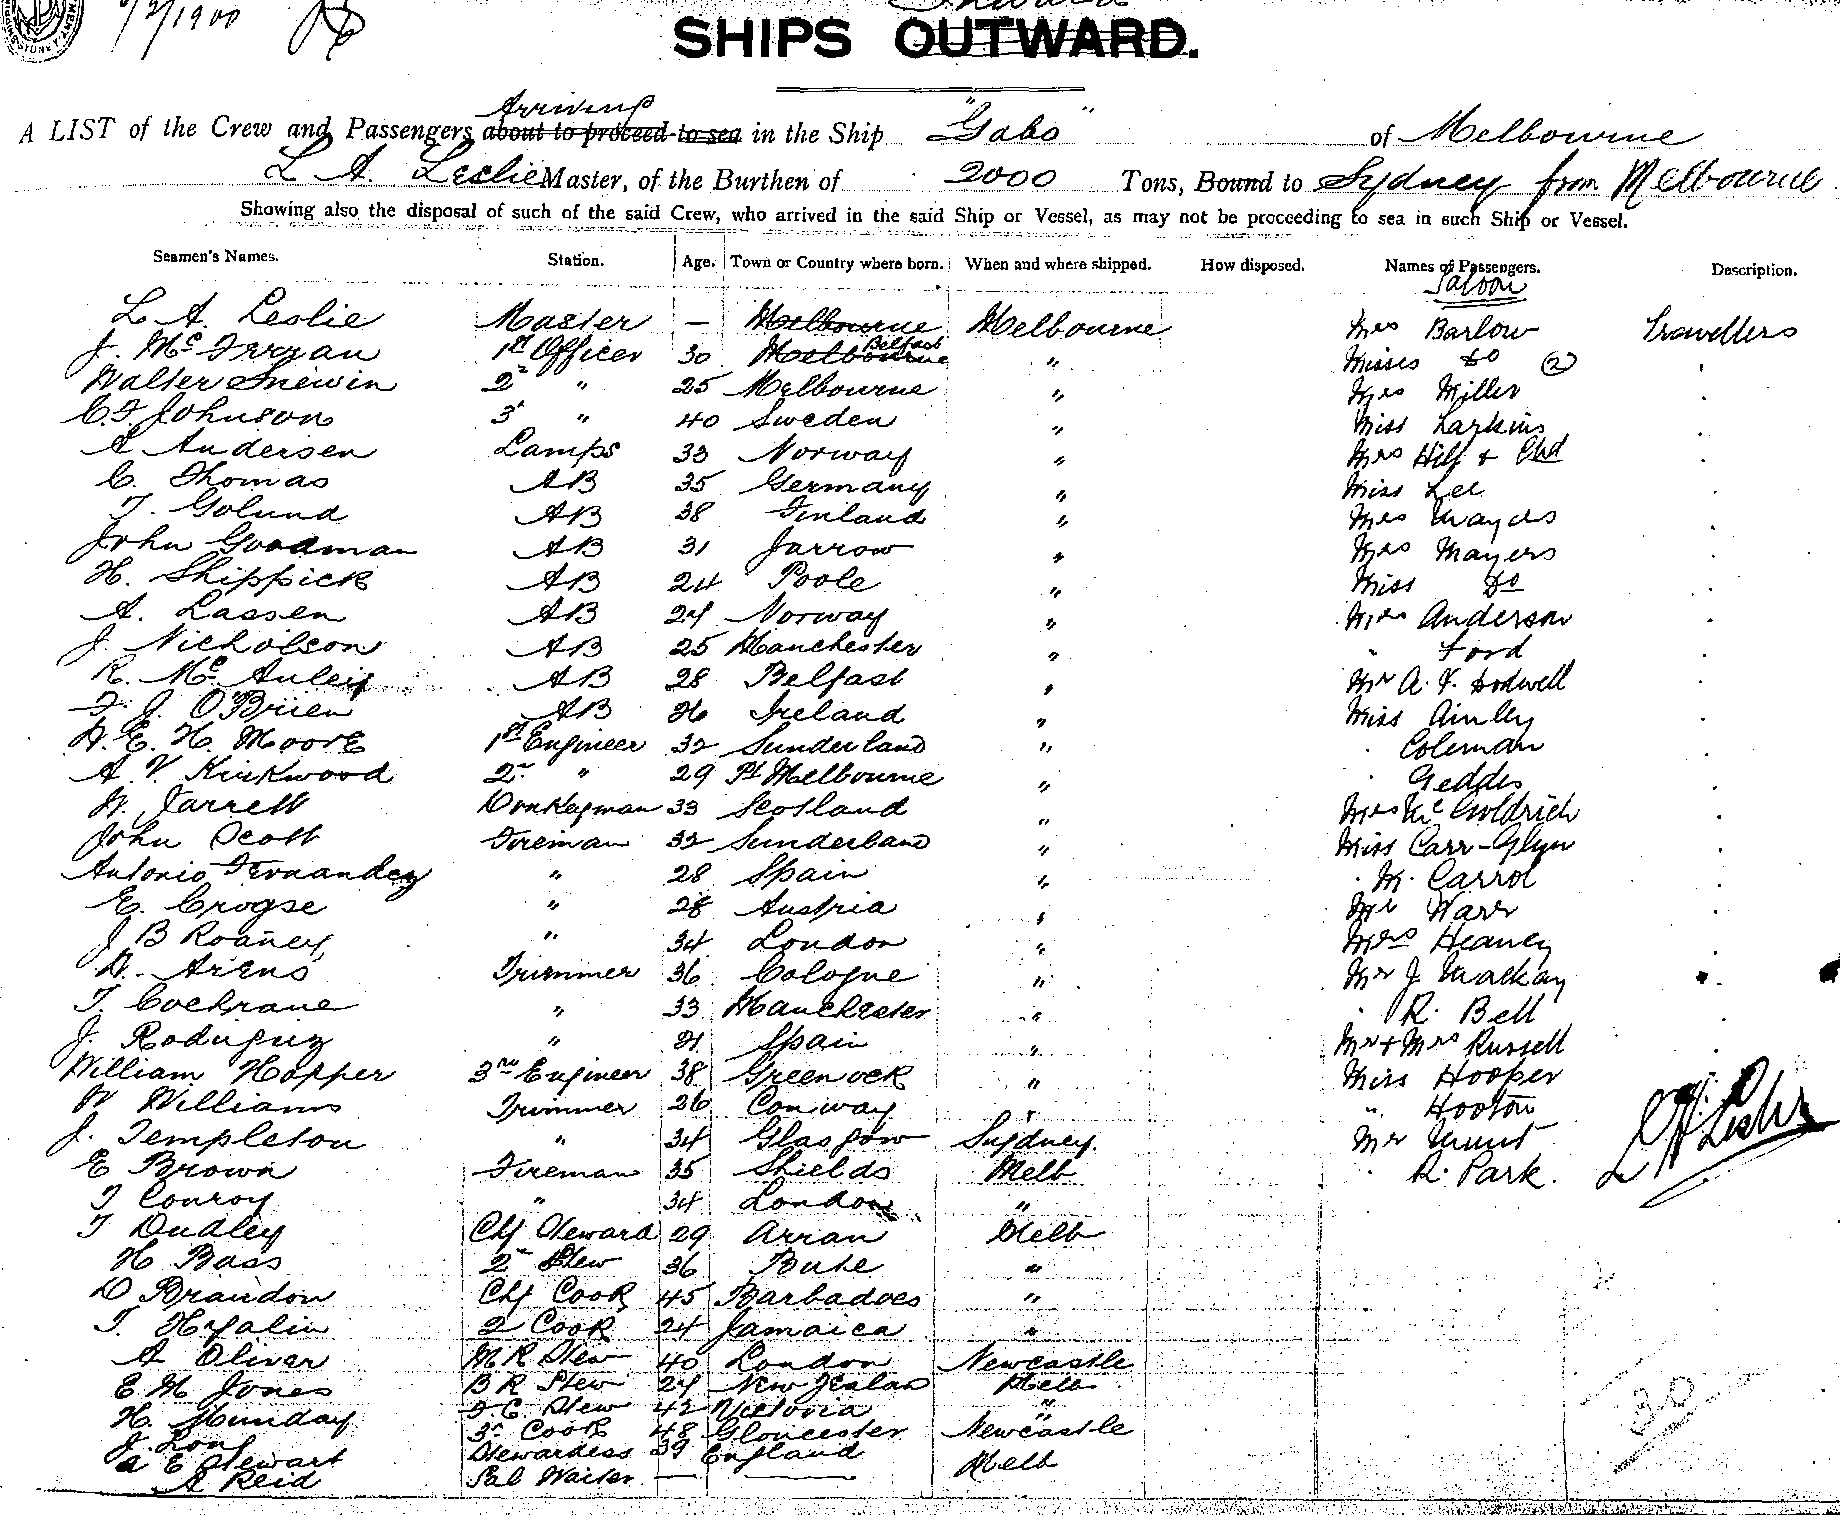 /2/1900
Inward
SHIPS OUTWARD.
Arriving
A LIST of the Crew and Passengers about to proceed to sea in the Ship "Gabo" of Melbourne
L A. Leslie Master, of the Burthen of 2000 Tons, Bound to Sydney from Melbourne
Showing also the disposal of such of the said Crew, who arrived in the said Ship or Vessel, as may not be proceeding to sea in such Ship or Vessel.
Seamen's Names. Station. Age. Town or Country where born. When and where shipped. How disposed. Names of Passengers. Description.
Saloon
L A. Leslie Master — Melbourne Melbourne Mrs Barlow Travellers
J. Mc 1st Officer 30 Melbourne Belfast " Misses Do (2)
Walter 2nd " 25 Melbourne " Mrs Miller
C. F Johnson 3 " 40 Sweden " Miss Larkins
A Andersen Lamps 33 Norway " Mrs Hill + Chd
C. Thomas AB 35 Germany " Miss Lee
T. Golund AB 38 Finland " Mrs
John Goodman AB 31 Jarrow " Mrs Mayers
H. Shippick AB 24 Poole " Miss Do
A. Lassen AB 24 Norway " Mrs Anderson
J. Nicholson AB 25 Manchester " " Ford
R. Mc Auley AB 28 Belfast " Mr A. F. Hodwell
F. J. O'Brien AB 26 Ireland " Miss Ainley
H. E. H. Moore 1st Engineer 32 Sunderland " Coleman
A V. Kirkwood 2nd " 29 Pt Melbourne " Geddes
W. Jarrett Donkeyman 33 Scotland " Mrs Mc Goldrich
John Scott Fireman 32 Sunderland " Miss Carr-Glyn
Antonio Fernandez " 28 Spain " M. Carrol
E. Crogse " 28 Austria " Mr Warr
J B Roaney " 34 London " Mrs Heaney
H. Arens Trimmer 36 Cologne " Mr J Mackay
T. Cochrane " 33 Manchester " R. Bell
J. Rodriguez " 21 Spain " Mr + Mrs Russell
William Hopper 3rd Engineer 38 Greenock " Miss Hooper
W Williams Trimmer 26 Conway " " Hooton
J. Templeton " 34 Glasgow Sydney. Mr
E Brown Fireman 35 Shields Melb R. Park.
T Conroy " 34 London "
L A Leslie
T Dudley Chf Steward 29 Arran Melb
H Bass 2nd Stew 36 Bute "
D Brandon Chf Cook 45 Barbadoes "
T. 2 Cook 24 Jamaica "
A Oliver M R Stew 40 London Newcastle
E. M Jones B R Stew 24 New Zealand Melb
H. Munday F. C. Stew 42 Victoria "
J. Long 3rd Cook 48 Gloucester Newcastle
A E Stewart Stewardess 39 England Melb
A Reid Sal Waiter — —
30